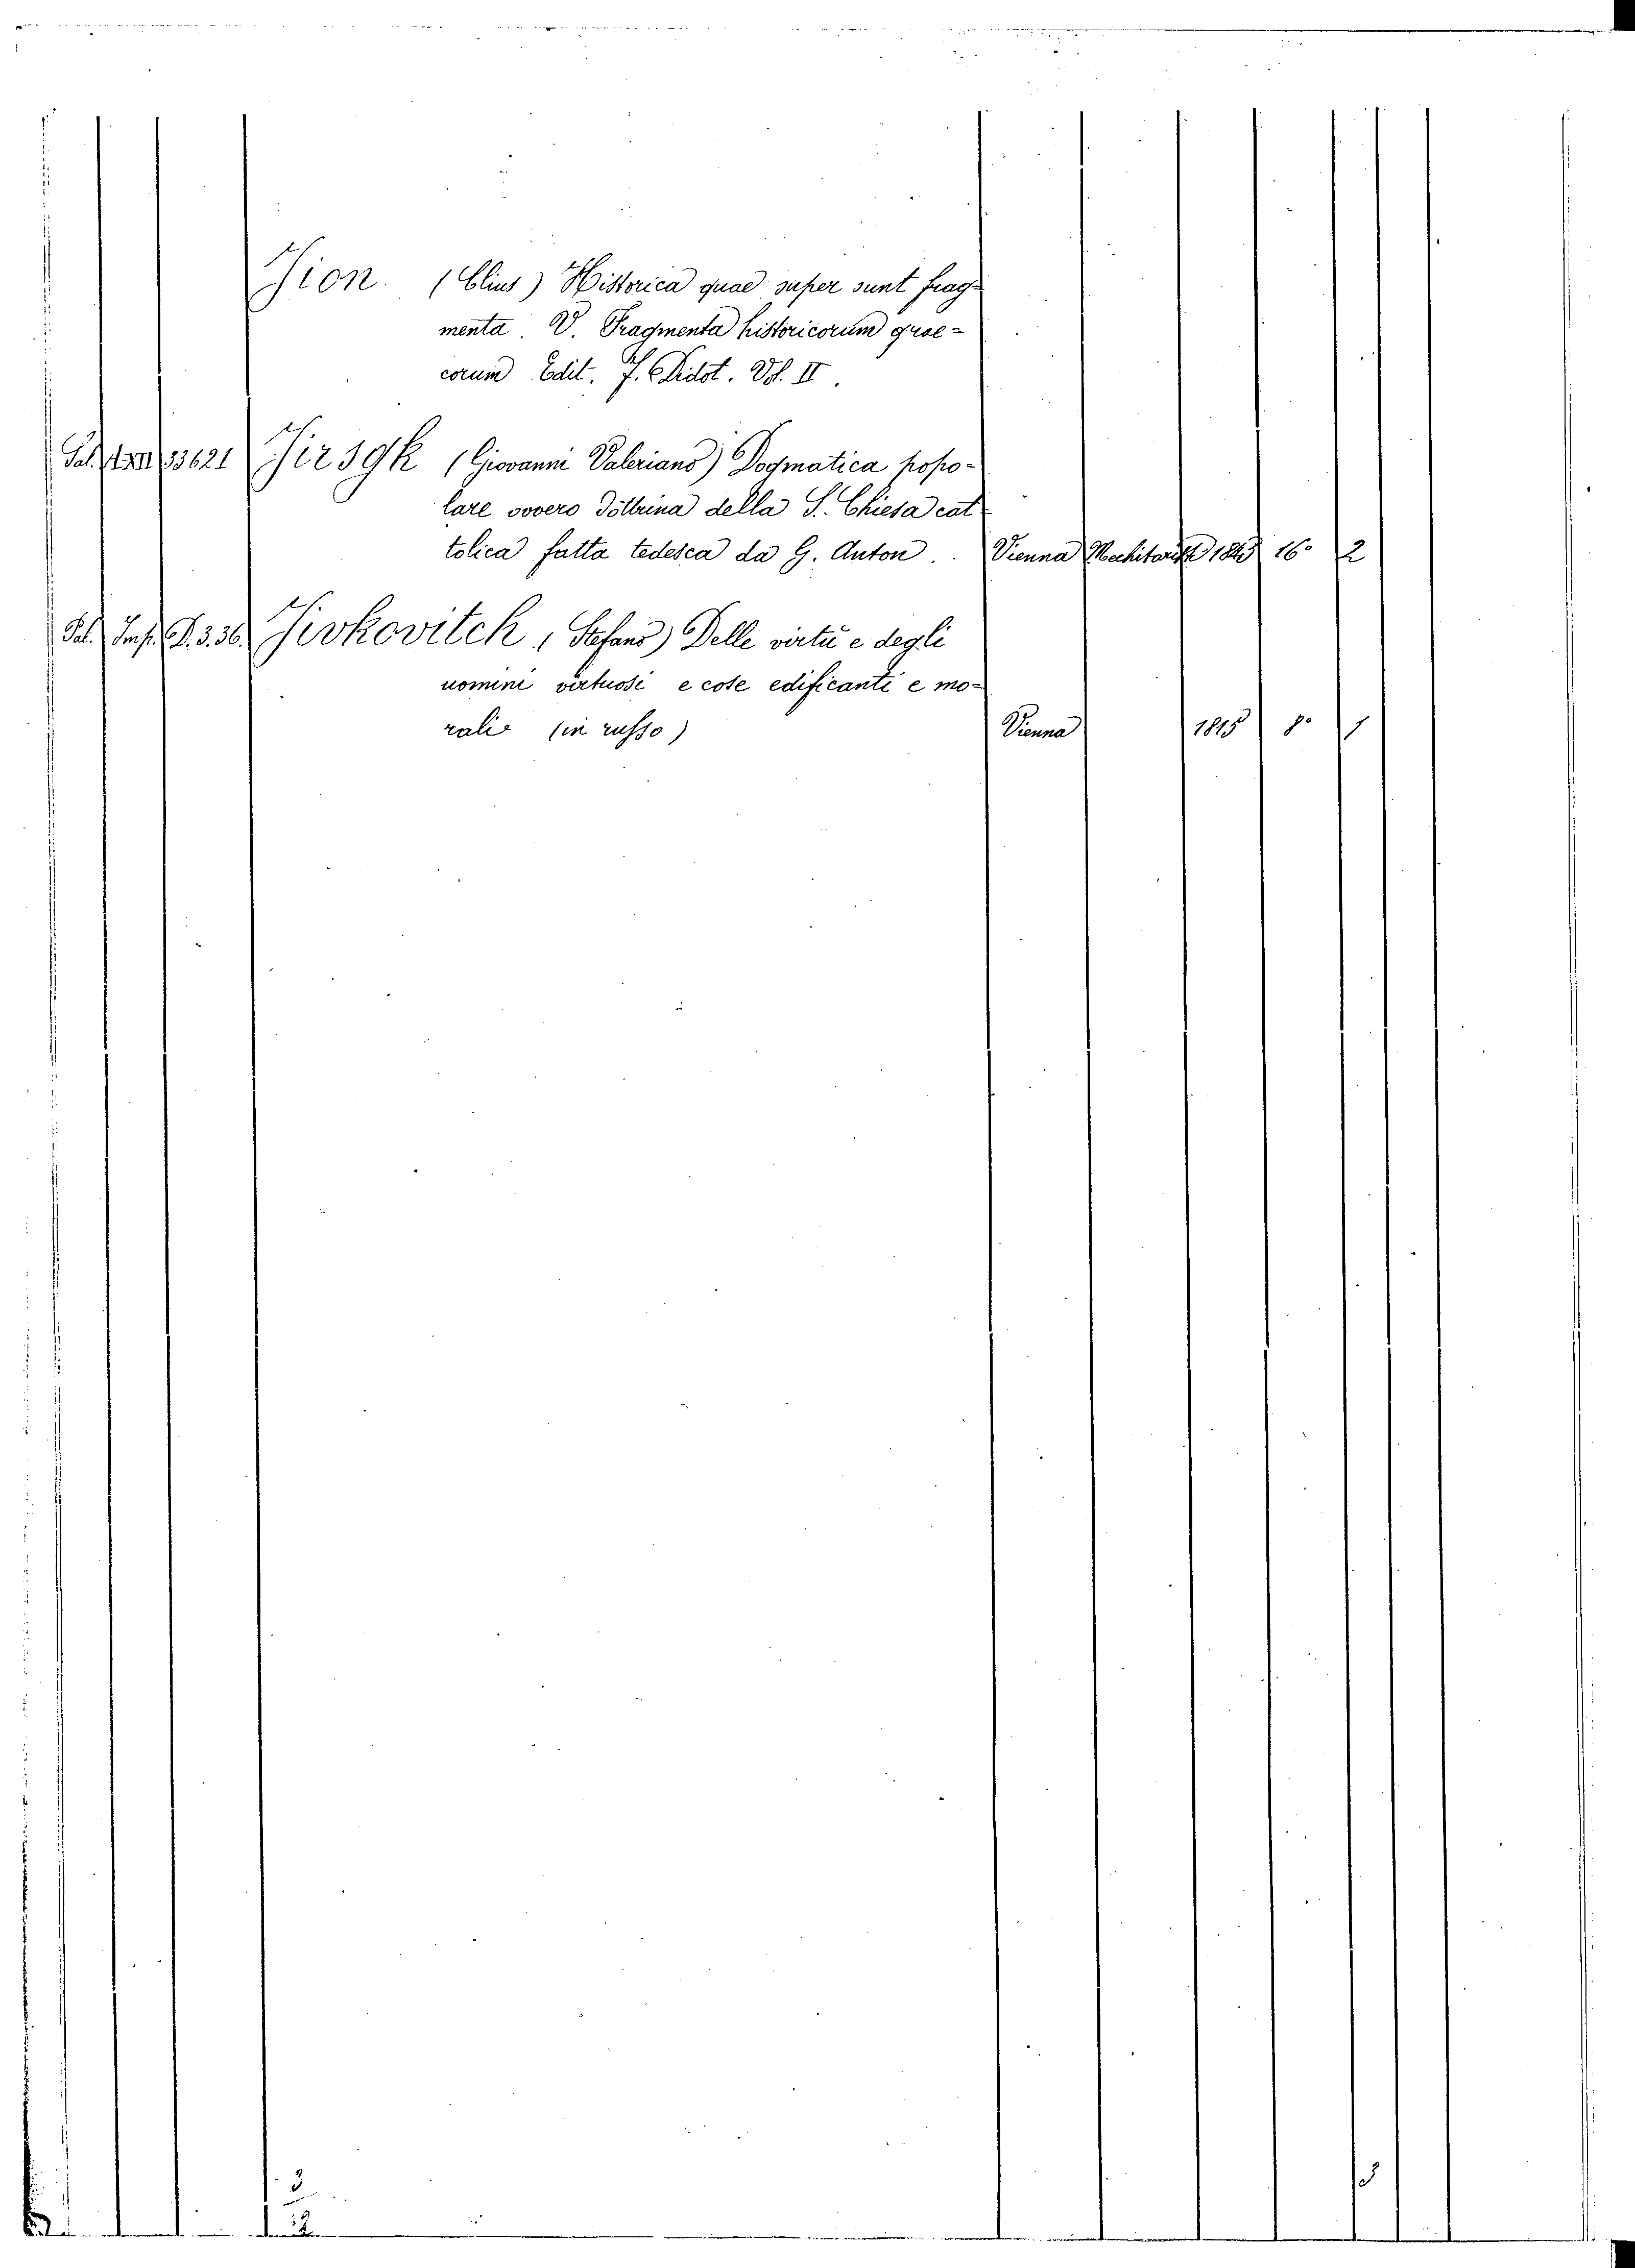 Jion. (Clius) Historica quae super sunt frag=
menta. V. Fragmenta historicorum grae=
corum Edit. f. Didot. Vol. II.
Sal. 33621 Jirsgk (Giovanni Valeriano) Dogmatica popo-
lare ovvero dottrina della S. Chiesa cat-
tolica fatta tedesca da G. Anton. Vienna 16° 2
Sal. Imp. 3.36. Jivkovitch (Stefano) Delle virtù e degli
uomini virtuosi e cose edificanti e mo=
ralie (in russo) Vienna 1815 8° 1
3
3
12